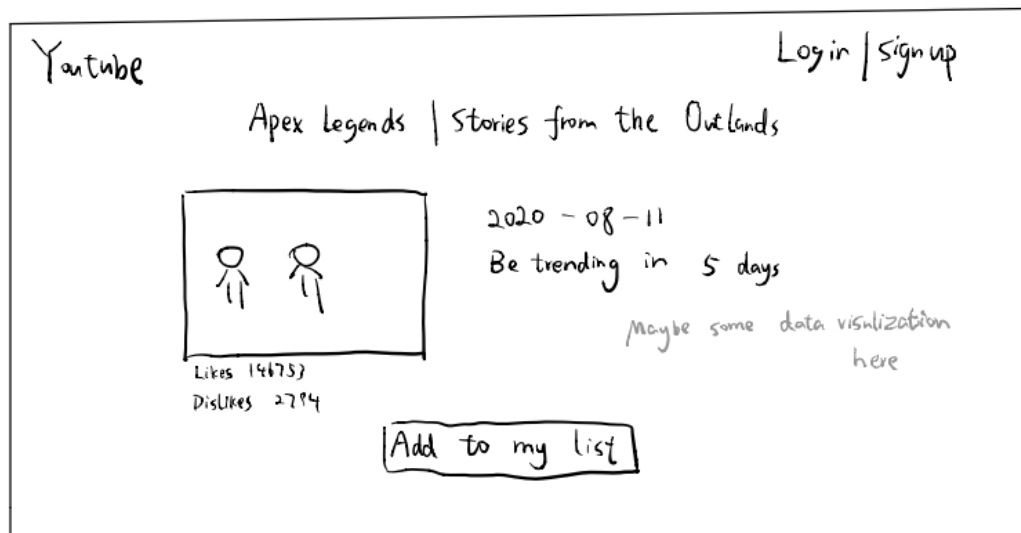 Youtube
Login | Sign up
Apex Legends | Stories from the Outlands
2020-08-11
Be trending in 5 days
Maybe some data visulization
here
Likes 146753
Dislikes 2794
Add to my list